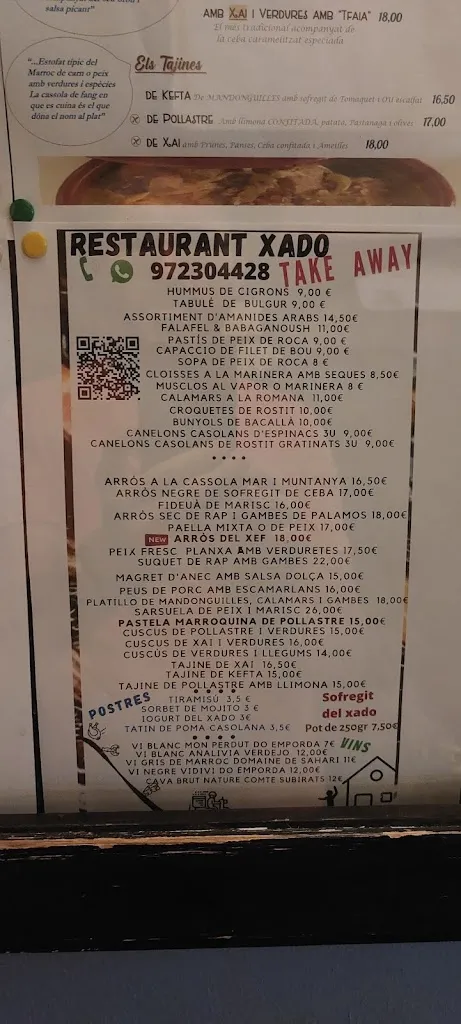 salsa picant"
AMB XAI I VERDURES AMB "TFAIA" 18,00
El més tradicional acompanyat de
la ceba caramelitzat especiada
"...Estofat típic del
Marroc de carn o peix
amb verdures i espècies
La cassola de fang en
que es cuina és el que
dóna el nom al plat"
Els Tajines
DE KEFTA De MANDONGUILLES amb sofregit de Tomaquet i OU escalfat 16,50
DE POLLASTRE Amb llimona CONFITADA, patata, Pastanaga i olives 17,00
DE XAI amb Prunes, Panses, Ceba confitada i Ametlles 18,00
RESTAURANT XADO
972304428 TAKE AWAY
HUMMUS DE CIGRONS 9,00 €
TABULÉ DE BULGUR 9,00 €
ASSORTIMENT D'AMANIDES ARABS 14,50€
FALAFEL & BABAGANOUSH 11,00€
PASTÍS DE PEIX DE ROCA 9,00 €
CAPACCIO DE FILET DE BOU 9,00 €
SOPA DE PEIX DE ROCA 8 €
CLOISSES A LA MARINERA AMB SEQUES 8,50€
MUSCLOS AL VAPOR O MARINERA 8 €
CALAMARS A LA ROMANA 11,00€
CROQUETES DE ROSTIT 10,00€
BUNYOLS DE BACALLÀ 10,00€
CANELONS CASOLANS D'ESPINACS 3U 9,00€
CANELONS CASOLANS DE ROSTIT GRATINATS 3U 9,00€
ARRÒS A LA CASSOLA MAR I MUNTANYA 16,50€
ARRÒS NEGRE DE SOFREGIT DE CEBA 17,00€
FIDEUÀ DE MARISC 16,00€
ARRÒS SEC DE RAP I GAMBES DE PALAMOS 18,00€
PAELLA MIXTA O DE PEIX 17,00€
NEW ARRÒS DEL XEF 18,00€
PEIX FRESC PLANXA AMB VERDURETES 17,50€
SUQUET DE RAP AMB GAMBES 22,00€
MAGRET D'ANEC AMB SALSA DOLÇA 15,00€
PEUS DE PORC AMB ESCAMARLANS 16,00€
PLATILLO DE MANDONGUILLES, CALAMARS I GAMBES 18,00€
SARSUELA DE PEIX I MARISC 26,00€
PASTELA MARROQUINA DE POLLASTRE 15,00€
CUSCUS DE POLLASTRE I VERDURES 15,00€
CUSCUS DE XAI I VERDURES 16,00€
CUSCÚS DE VERDURES I LLEGUMS 14,00€
TAJINE DE XAI 16,50€
TAJINE DE KEFTA 15,00€
TAJINE DE POLLASTRE AMB LLIMONA 15,00€
POSTRES
TIRAMISÚ 3,5 €
SORBET DE MOJITO 3 €
IOGURT DEL XADO 3€
TATIN DE POMA CASOLANA 3,5€
Sofregit
del xado
Pot de 250gr 7,50€
VINS
VI BLANC MON PERDUT DO EMPORDA 7€
VI BLANC ANALIVIA VERDEJO 12,00€
VI GRIS DE MARROC DOMAINE DE SAHARI 11€
VI NEGRE VIDIVI DO EMPORDA 12,00€
CAVA BRUT NATURE COMTE SUBIRATS 12€